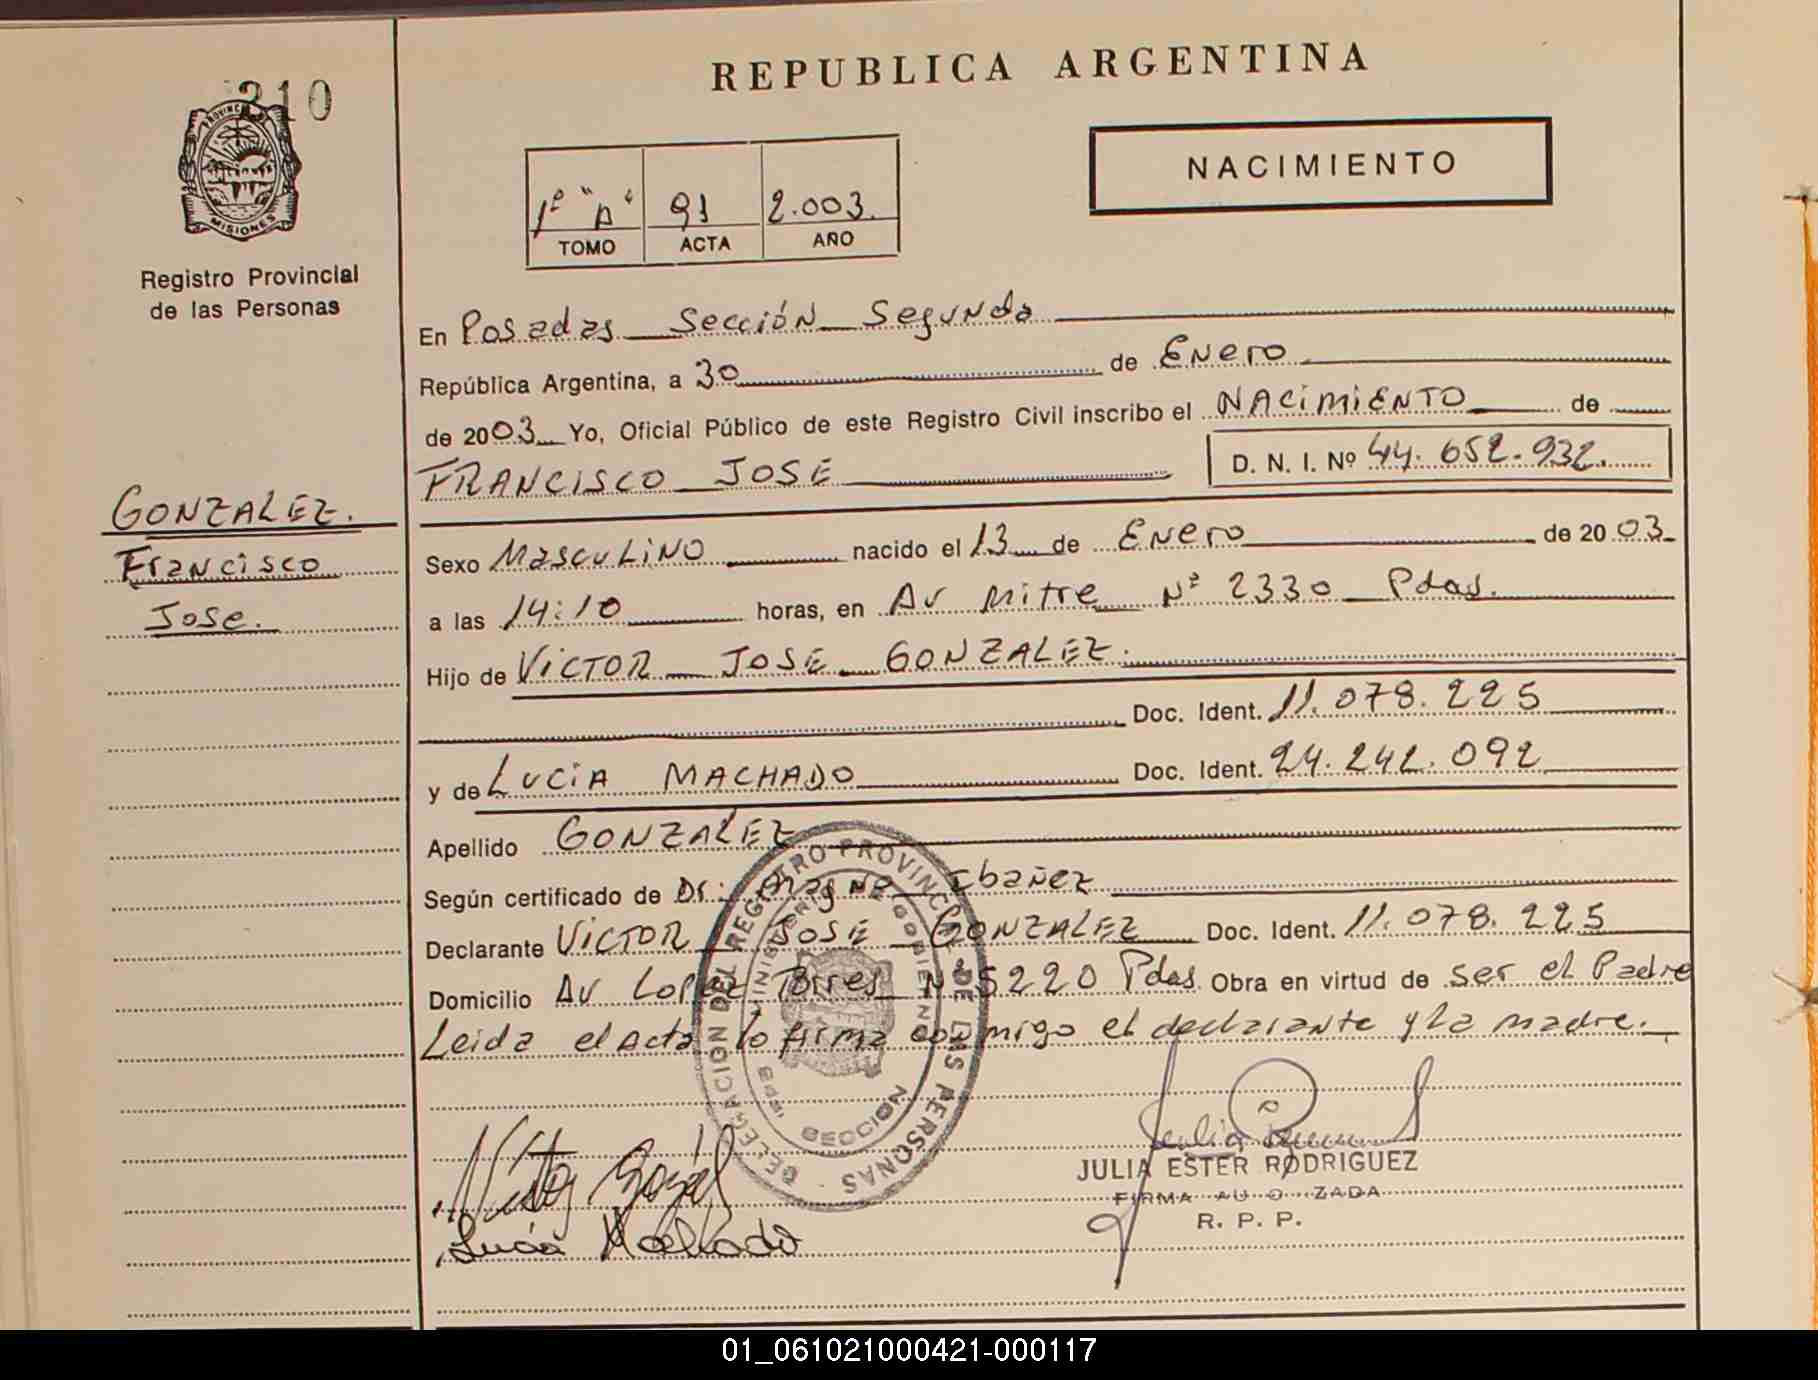 210
PROVINCIA DE
MISIONES
Registro Provincial
de las Personas
GONZALEZ.
Francisco
Jose.
REPUBLICA ARGENTINA
NACIMIENTO
1º "A" 91 2.003.
TOMO ACTA AÑO
En Posadas Sección Segunda
República Argentina, a 30 de Enero
de 2003 Yo, Oficial Público de este Registro Civil inscribo el NACIMIENTO de
FRANCISCO JOSE D. N. I. Nº 44.652.932.
Sexo MASCULINO nacido el 13 de Enero de 2003
a las 14:10 horas, en Av Mitre Nº 2330 Pdas.
Hijo de VICTOR JOSE GONZALEZ.
Doc. Ident. 11.078.225
y de LUCIA MACHADO Doc. Ident. 24.242.092
Apellido GONZALEZ
Según certificado de Dr: Magna Ibañez
Declarante VICTOR JOSE GONZALEZ Doc. Ident. 11.078.225
Domicilio Av Lopez Torres N 5220 Pdas Obra en virtud de ser el Padre
Leida el Acta lo firma conmigo el declarante y la madre.
DELEGACION DEL REGISTRO PROVINCIAL DE LAS PERSONAS
MINISTERIO DE GOBIERNO
SECCION
Lucia Machado
JULIA ESTER RODRIGUEZ
FIRMA AU O ZADA
R. P. P.
01_061021000421-000117